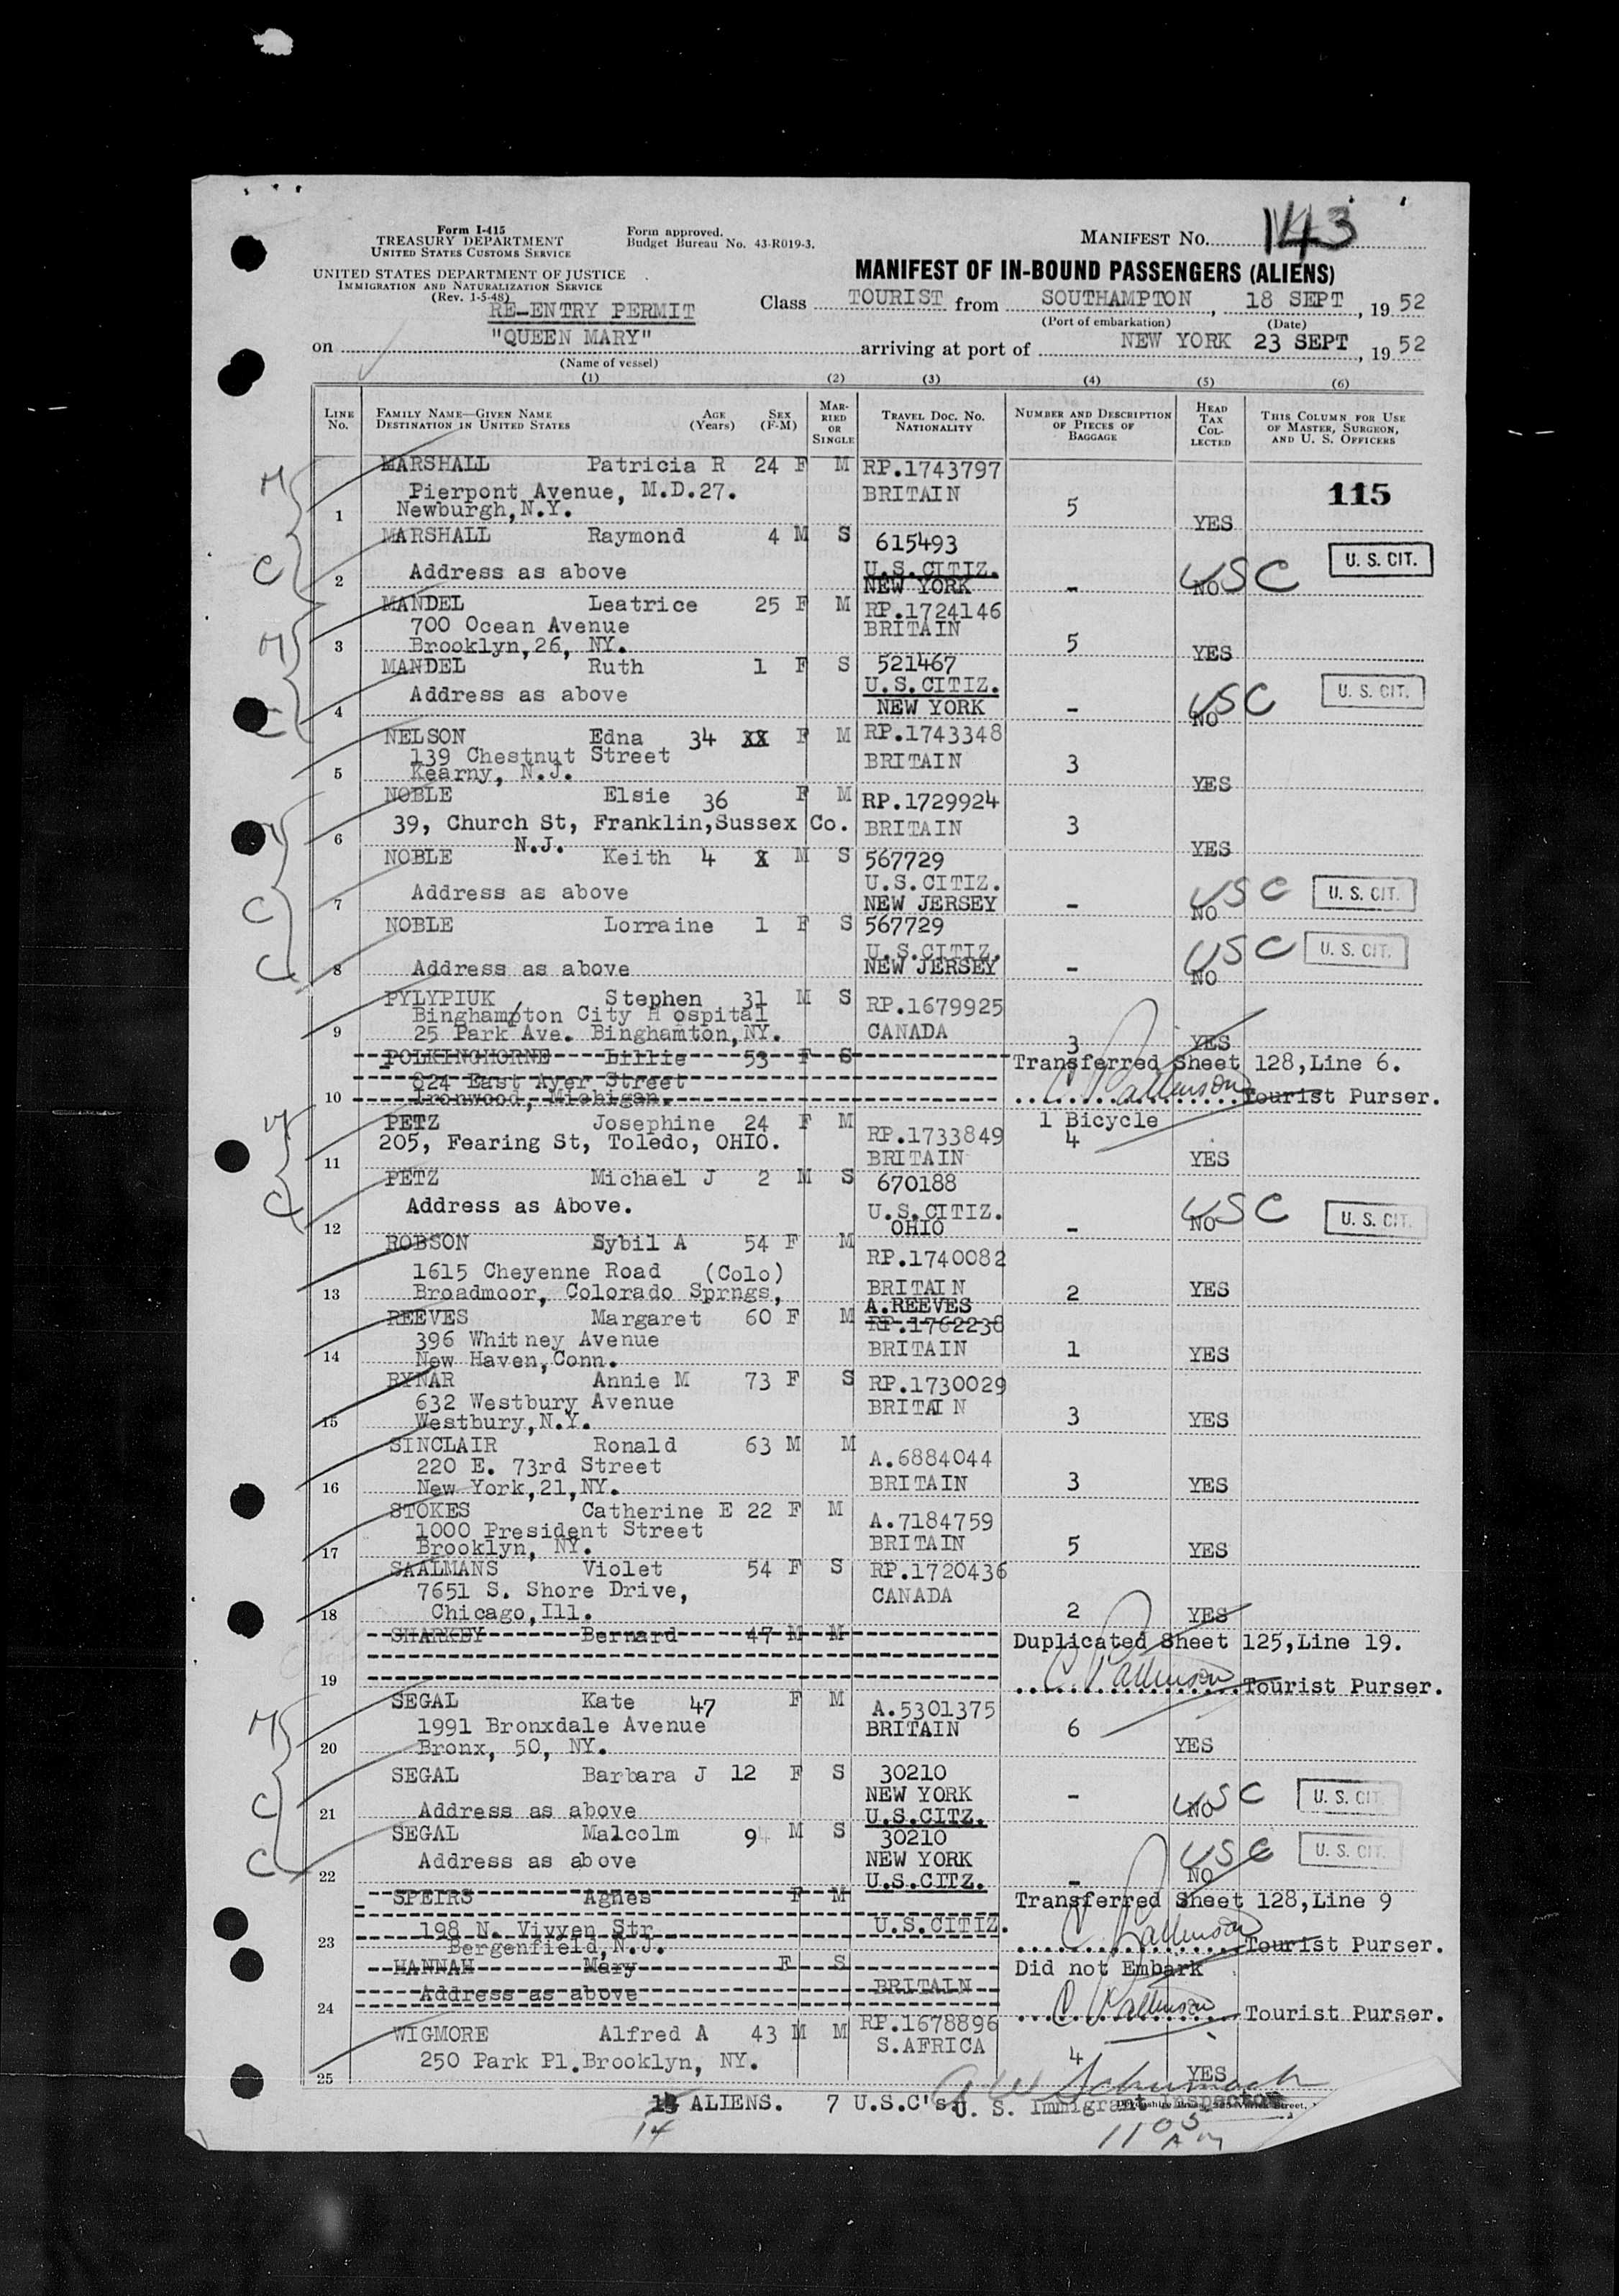 Form I-415
TREASURY DEPARTMENT
UNITED STATES CUSTOMS SERVICE
Form approved.
Budget Bureau No. 43-R019-3.
MANIFEST No. 143
UNITED STATES DEPARTMENT OF JUSTICE
IMMIGRATION AND NATURALIZATION SERVICE
(Rev. 1-5-48)
MANIFEST OF IN-BOUND PASSENGERS (ALIENS)
RE-ENTRY PERMIT
Class TOURIST from SOUTHAMPTON, 18 SEPT, 19 52
(Port of embarkation) (Date)
on "QUEEN MARY" arriving at port of NEW YORK 23 SEPT, 19 52
(Name of vessel)
(1) (2) (3) (4) (5) (6)
LINE No. FAMILY NAME—GIVEN NAME DESTINATION IN UNITED STATES AGE (Years) SEX (F-M) MARRIED OR SINGLE TRAVEL DOC. NO. NATIONALITY NUMBER AND DESCRIPTION OF PIECES OF BAGGAGE HEAD TAX COLLECTED THIS COLUMN FOR USE OF MASTER, SURGEON, AND U. S. OFFICERS
MARSHALL Patricia R 24 F M RP.1743797
Pierpont Avenue, M.D.27. BRITAIN 115
1 Newburgh,N.Y. 5 YES
MARSHALL Raymond 4 M S 615493
C Address as above U.S.CITIZ. USC U. S. CIT.
2 NEW YORK - NO
MANDEL Leatrice 25 F M RP.1724146
700 Ocean Avenue BRITAIN
3 Brooklyn,26, NY. 5 YES
MANDEL Ruth 1 F S 521467
Address as above U.S.CITIZ. USC U. S. CIT.
4 C NEW YORK - NO
NELSON Edna 34 XX F M RP.1743348
139 Chestnut Street BRITAIN 3
5 Kearny, N.J. YES
NOBLE Elsie 36 F M RP.1729924
39, Church St, Franklin,Sussex Co. BRITAIN 3
6 N.J. YES
NOBLE Keith 4 X M S 567729
C Address as above U.S.CITIZ. USC U. S. CIT.
7 NEW JERSEY - NO
NOBLE Lorraine 1 F S 567729
U.S.CITIZ. USC U. S. CIT.
C 8 Address as above NEW JERSEY - NO
PYLYPIUK Stephen 31 M S RP.1679925
Binghampton City H ospital
9 25 Park Ave. Binghamton,NY. CANADA 3 YES
POLKINGHORNE Lillie 53 F S Transferred Sheet 128,Line 6.
824 East Ayer Street
10 Ironwood, Michigan. Tourist Purser.
PETZ Josephine 24 F M 1 Bicycle
205, Fearing St, Toledo, OHIO. RP.1733849 4
11 BRITAIN YES
PETZ Michael J 2 M S 670188
C Address as Above. U.S.CITIZ. USC U. S. CIT.
12 OHIO - NO
ROBSON Sybil A 54 F M RP.1740082
1615 Cheyenne Road (Colo)
13 Broadmoor, Colorado Sprngs, BRITAI N 2 YES
A.REEVES
REEVES Margaret 60 F M RP.1762238
396 Whit ney Avenue
14 New Haven,Conn. BRITAIN 1 YES
RYNAR Annie M 73 F S RP.1730029
632 Westbury Avenue BRITAI N
15 Westbury,N.Y. 3 YES
SINCLAIR Ronald 63 M M A.6884044
220 E. 73rd Street
16 New York,21,NY. BRITAIN 3 YES
STOKES Catherine E 22 F M A.7184759
1000 President Street
17 Brooklyn, NY. BRITAIN 5 YES
SAALMANS Violet 54 F S RP.1720436
7651 S. Shore Drive, CANADA
18 Chicago,Ill. 2 YES
SHARKEY Bernard 47 M M Duplicated Sheet 125,Line 19.
19 Tourist Purser.
SEGAL Kate 47 F M A.5301375
1991 Bronxdale Avenue BRITAIN 6
20 Bronx, 50, NY. YES
SEGAL Barbara J 12 F S 30210
C NEW YORK - USC U. S. CIT.
21 Address as above U.S.CITZ. NO
SEGAL Malcolm 9 M S 30210
C Address as above NEW YORK USC U. S. CIT.
22 U.S.CITZ. - NO
SPEIRS Agnes F M Transferred Sheet 128,Line 9
198 N. Vivyen Str U.S.CITIZ.
23 Bergenfield,N.J. Tourist Purser.
HANNAH Mary F S Did not Embark
Address as above BRITAIN
24 Tourist Purser.
WIGMORE Alfred A 43 M M RP.1678896
250 Park Pl.Brooklyn, NY. S.AFRICA 4
25 YES
ALIENS. 7 U.S.C's. U. S. Immigrant Inspector
14 1105 AM